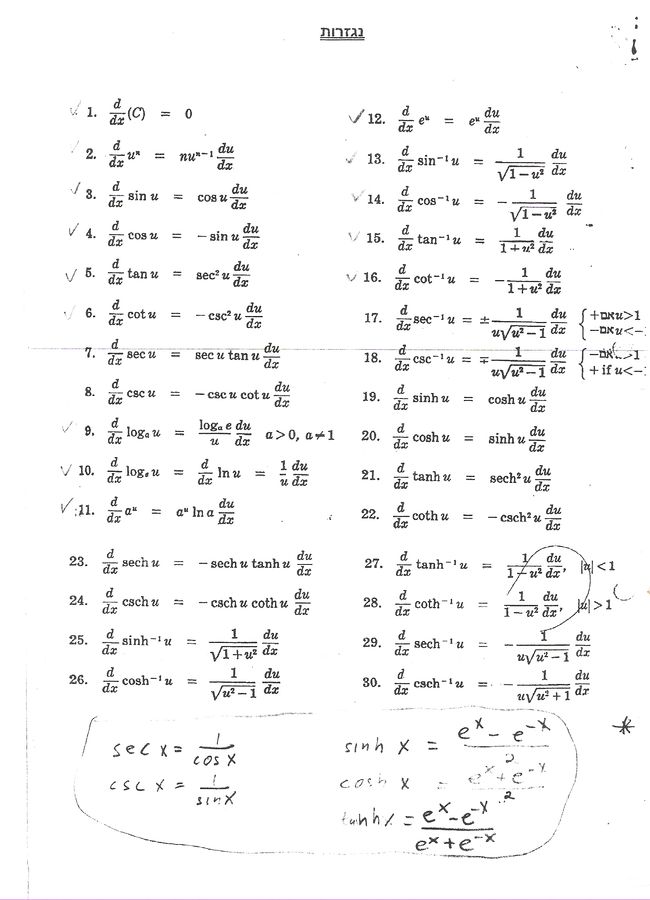 נגזרות
1. d/dx (C) = 0
2. d/dx uⁿ = nuⁿ⁻¹ du/dx
3. d/dx sin u = cos u du/dx
4. d/dx cos u = − sin u du/dx
5. d/dx tan u = sec² u du/dx
6. d/dx cot u = − csc² u du/dx
7. d/dx sec u = sec u tan u du/dx
8. d/dx csc u = − csc u cot u du/dx
9. d/dx logₐ u = logₐ e/u du/dx a > 0, a ≠ 1
10. d/dx logₑ u = d/dx ln u = 1/u du/dx
11. d/dx aᵘ = aᵘ ln a du/dx
12. d/dx eᵘ = eᵘ du/dx
13. d/dx sin⁻¹ u = 1/√(1 − u²) du/dx
14. d/dx cos⁻¹ u = − 1/√(1 − u²) du/dx
15. d/dx tan⁻¹ u = 1/(1 + u²) du/dx
16. d/dx cot⁻¹ u = − 1/(1 + u²) du/dx
17. d/dx sec⁻¹ u = ± 1/(u√(u² − 1)) du/dx { + אם u > 1
− אם u < −
18. d/dx csc⁻¹ u = ∓ 1/(u√(u² − 1)) du/dx { − אם > 1
+ if u < −
19. d/dx sinh u = cosh u du/dx
20. d/dx cosh u = sinh u du/dx
21. d/dx tanh u = sech² u du/dx
22. d/dx coth u = − csch² u du/dx
23. d/dx sech u = − sech u tanh u du/dx
24. d/dx csch u = − csch u coth u du/dx
25. d/dx sinh⁻¹ u = 1/√(1 + u²) du/dx
26. d/dx cosh⁻¹ u = 1/√(u² − 1) du/dx
27. d/dx tanh⁻¹ u = 1/(1 − u²) du/dx, |u| < 1
28. d/dx coth⁻¹ u = 1/(1 − u²) du/dx, |u| > 1
29. d/dx sech⁻¹ u = − 1/(u√(u² − 1)) du/dx
30. d/dx csch⁻¹ u = − 1/(u√(u² + 1)) du/dx
sec x = 1/cos x
csc x = 1/sin x
sinh x = (eˣ − e⁻ˣ)/2
cosh x = (eˣ + e⁻ˣ)/2
tanh x = (eˣ − e⁻ˣ)/(eˣ + e⁻ˣ)